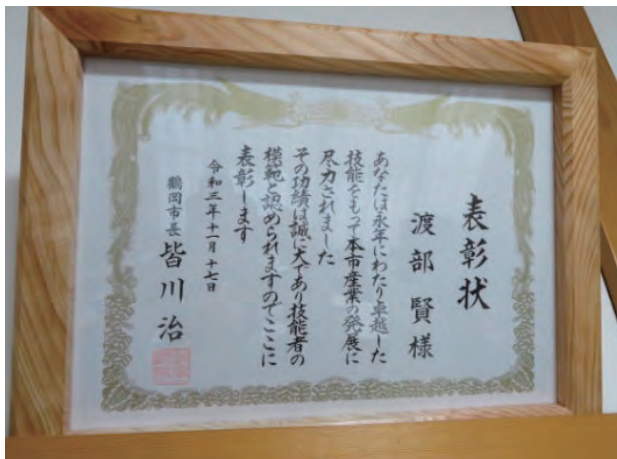 表彰状
渡部賢様
あなたは永年にわたり卓越した
技能をもって本市産業の発展に
尽力されました
その功績は誠に大であり技能者の
模範と認められますのでここに
表彰します
令和三年十一月十七日
鶴岡市長 皆川治